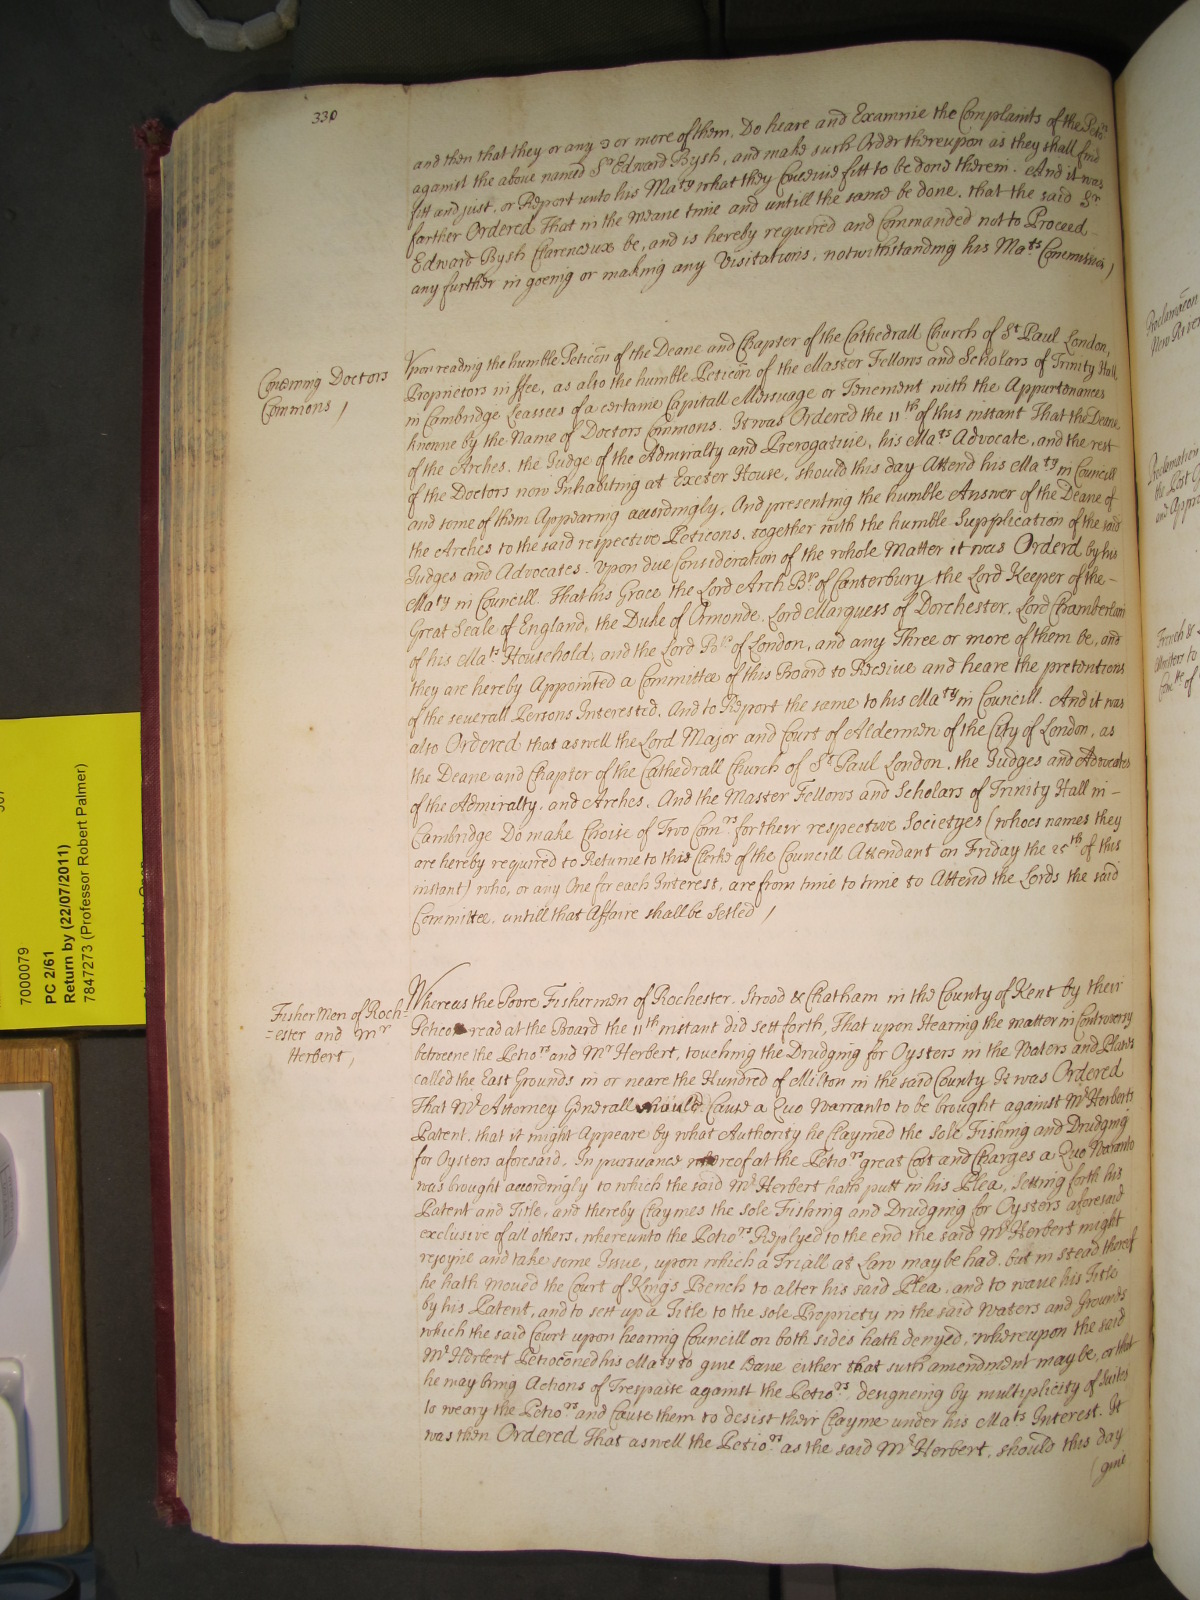 330
and then that they or any 3 or more of them, Do heare and Examine the Complaints of the Petio.rs
against the above named Sr Edward Bysh, and make such Order thereupon as they shall find
fitt and just, or Report unto his Maty what they Conceive fitt to be done therein. And it was
farther Ordered That in the meane time and untill the same be done, that the said Sr
Edward Bysh Clarenceux be, and is hereby required and Commanded not to Proceed
any further in goeing or making any Visitations, notwithstanding his Mats Commission /
Concerning Doctors
Commons /
Upon reading the humble Peticōn of the Deane and Chapter of the Cathedrall Church of St Paul London,
Proprietors in ffee, as also the humble Peticōn of the Master Fellows and Scholars of Trinity Hall
in Cambridge Leassees of a certaine Capitall Messuage or Tenement with the Appurtenances
knowne by the Name of Doctors Commons. It was Ordered the 11th of this instant That the Deane
of the Arches, the Judge of the Admiralty and Prerogative, his Mats Advocate, and the rest
of the Doctors now Inhabiting at Exeter House, should this day Attend his Maty in Councill
and some of them Appearing accordingly, And presenting the humble Answer of the Deane of
the Arches to the said respective Peticons, together with the humble Supplication of the said
Judges and Advocates. Upon due Consideration of the whole Matter it was Orderd by his
Maty in Councill. That his Grace the Lord Arch Bp. of Canterbury the Lord Keeper of the -
Great Seale of England, the Duke of Ormonde, Lord Marquess of Dorchester, Lord Chamberlain
of his Mats Household, and the Lord Bp. of London, and any Three or more of them be, and
they are hereby Appointed a Committee of this Board to Receive and heare the pretentions
of the severall Persons Interested, And to Report the same to his Maty in Councill. And it was
also Ordered that aswell the Lord Major and Court of Aldermen of the City of London, as
the Deane and Chapter of the Cathedrall Church of St Paul London, the Judges and Advocates
of the Admiralty, and Arches, And the Master Fellows and Scholars of Trinity Hall in -
Cambridge Do make Choise of Two Com.rs for their respective Societyes (whoes names they
are hereby required to Returne to the Clerke of the Councill Attendant on Friday the 25th of this
instant) who, or any One for each Interest, are from time to time to Attend the Lords the said
Committee, untill that Affaire shall be Setled /
Fisher Men of Roch-
=ester and Mr
Herbert /
Whereas the Poore Fishermen of Rochester, Strood & Chatham in the County of Kent by their
Peticon read at the Board the 11th instant did sett forth, That upon Hearing the matter in Controversy
betweene the Petio.rs and Mr Herbert, touching the Drudging for Oysters in the Waters and Places
called the East Grounds in or neare the Hundred of Milton in the said County It was Ordered
That Mr Attorney Generall should Cause a Quo Warranto to be brought against Mr Herberts
Patent, that it might Appeare by what Authority he Claymed the sole Fishing and Drudging
for Oysters aforesaid. In pursuance whereof at the Petio.rs great Cost and Charges a Quo Waranto
was brought accordingly to which the said Mr Herbert hath putt in his Plea, Setting forth his
Patent and Title, and thereby Claymes the sole Fishing and Drudging for Oysters aforesaid
exclusive of all others, whereunto the Petio.rs Replyed to the end the said Mr Herbert might
rejoyne and take some Issue, upon which a Triall at Law may be had, but in stead thereof
he hath moved the Court of Kings Bench to alter his said Plea, and to wave his Title
by his Patent, and to sett up a Title to the sole Propriety in the said Waters and Grounds
which the said Court upon hearing Councill on both sides hath denyed, whereupon the said
Mr Herbert Petioconed his Maty to give Leave either that such amendment may be, or that
he may bring Actions of Trespasse against the Petio.rs, designeing by multiplicity of Suites
to weary the Petio.rs and Cause them to desist their Clayme under his Mats Interest. It
was then Ordered That aswell the Petio.rs as the said Mr Herbert, should this day
(give
7000079
PC 2/61
Return by (22/07/2011)
7847273 (Professor Robert Palmer)